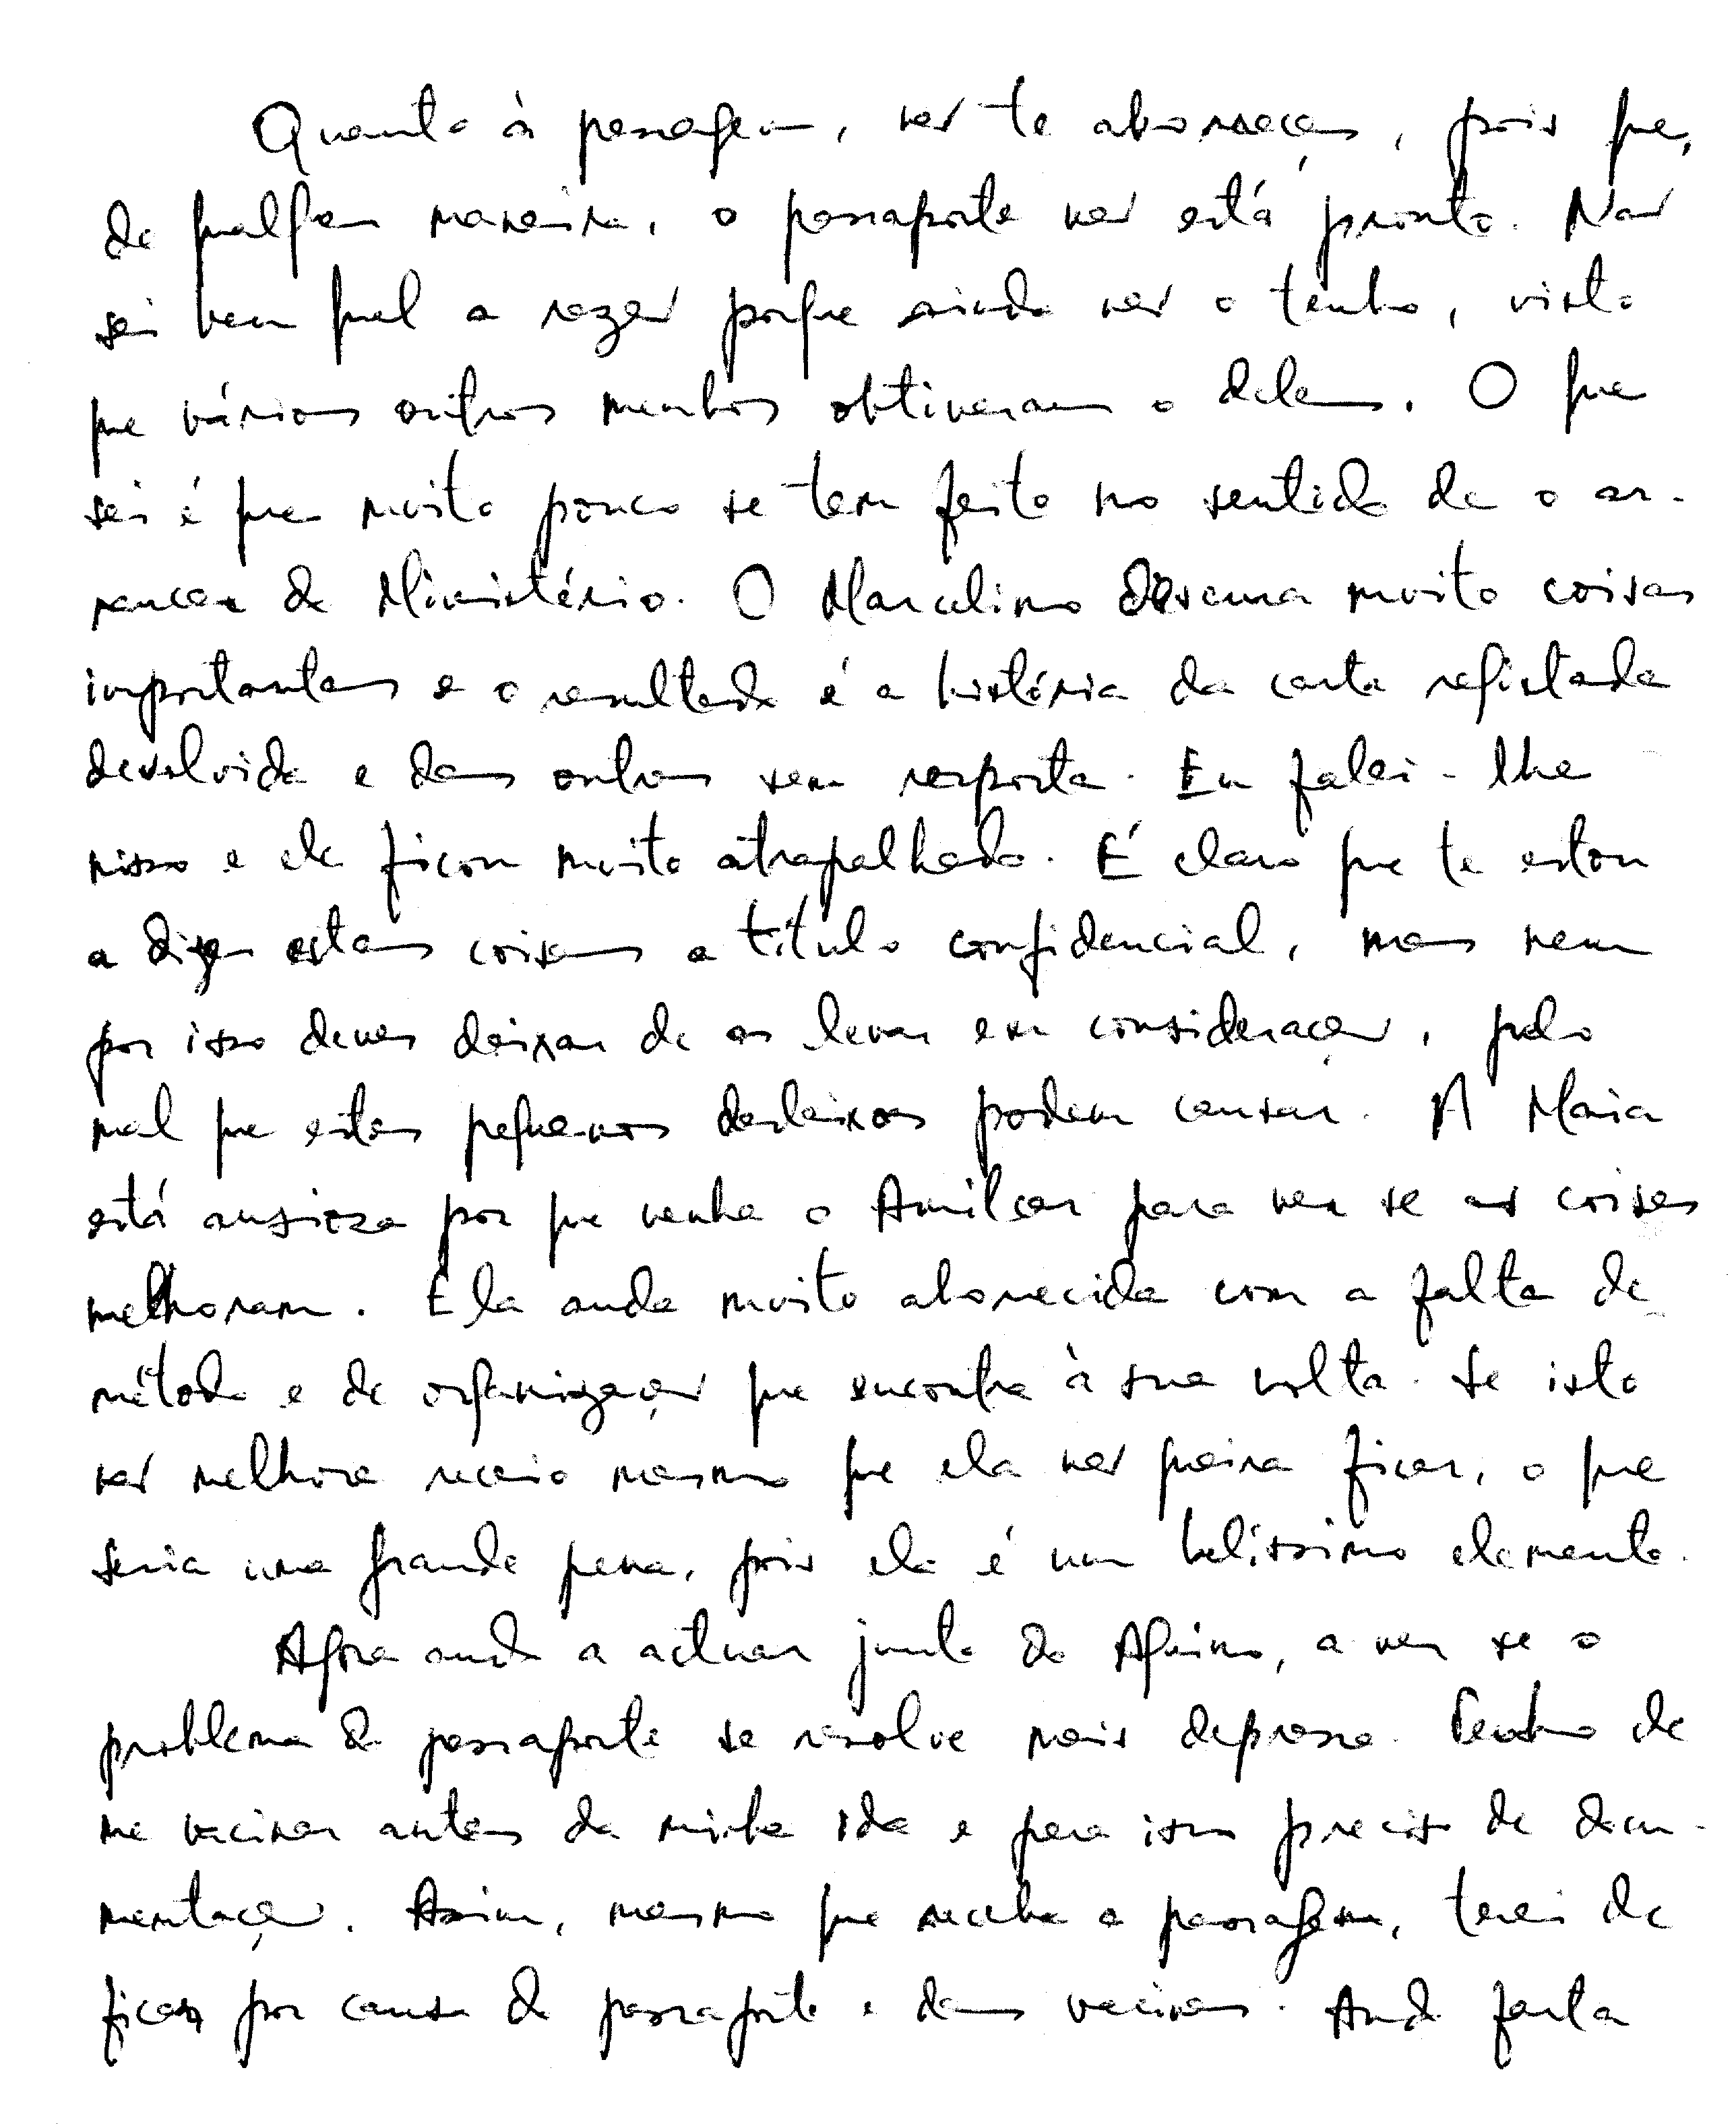 Quanto à passagem, não te aborreças, pois que,
de qualquer maneira, o passaporte não está pronto. Não
sei bem qual a razão porque ainda não o tenho, visto
que vários outros membros obtiveram o deles. O que
sei é que muito pouco se tem feito no sentido de o ar-
rancar do Ministério. O Marcelino descura muito coisas
importantes e o resultado é a história da carta registada
devolvida e das outras sem resposta. Eu falei-lhe
nisso e ele ficou muito atrapalhado. É claro que te estou
a dizer estas coisas a título confidencial, mas nem
por isso deves deixar de as levar em consideração, pelo
mal que estes pequenos desleixos podem causar. A Maria
está ansiosa por que venha o Amílcar para ver se as coisas
melhoram. Ela anda muito aborrecida com a falta de
método e de organização que encontra à sua volta. Se isto
não melhora receio mesmo que ela não queira ficar, o que
seria uma grande pena, pois ela é um belíssimo elemento.
Agora ando a actuar junto do Aquino, a ver se o
problema do passaporte se resolve mais depressa. Tenho de
me vacinar antes da minha ida e para isso preciso de docu-
mentação. Assim, mesmo que receba a passagem, terei de
ficar por causa do passaporte e das vacinas. Ando farta